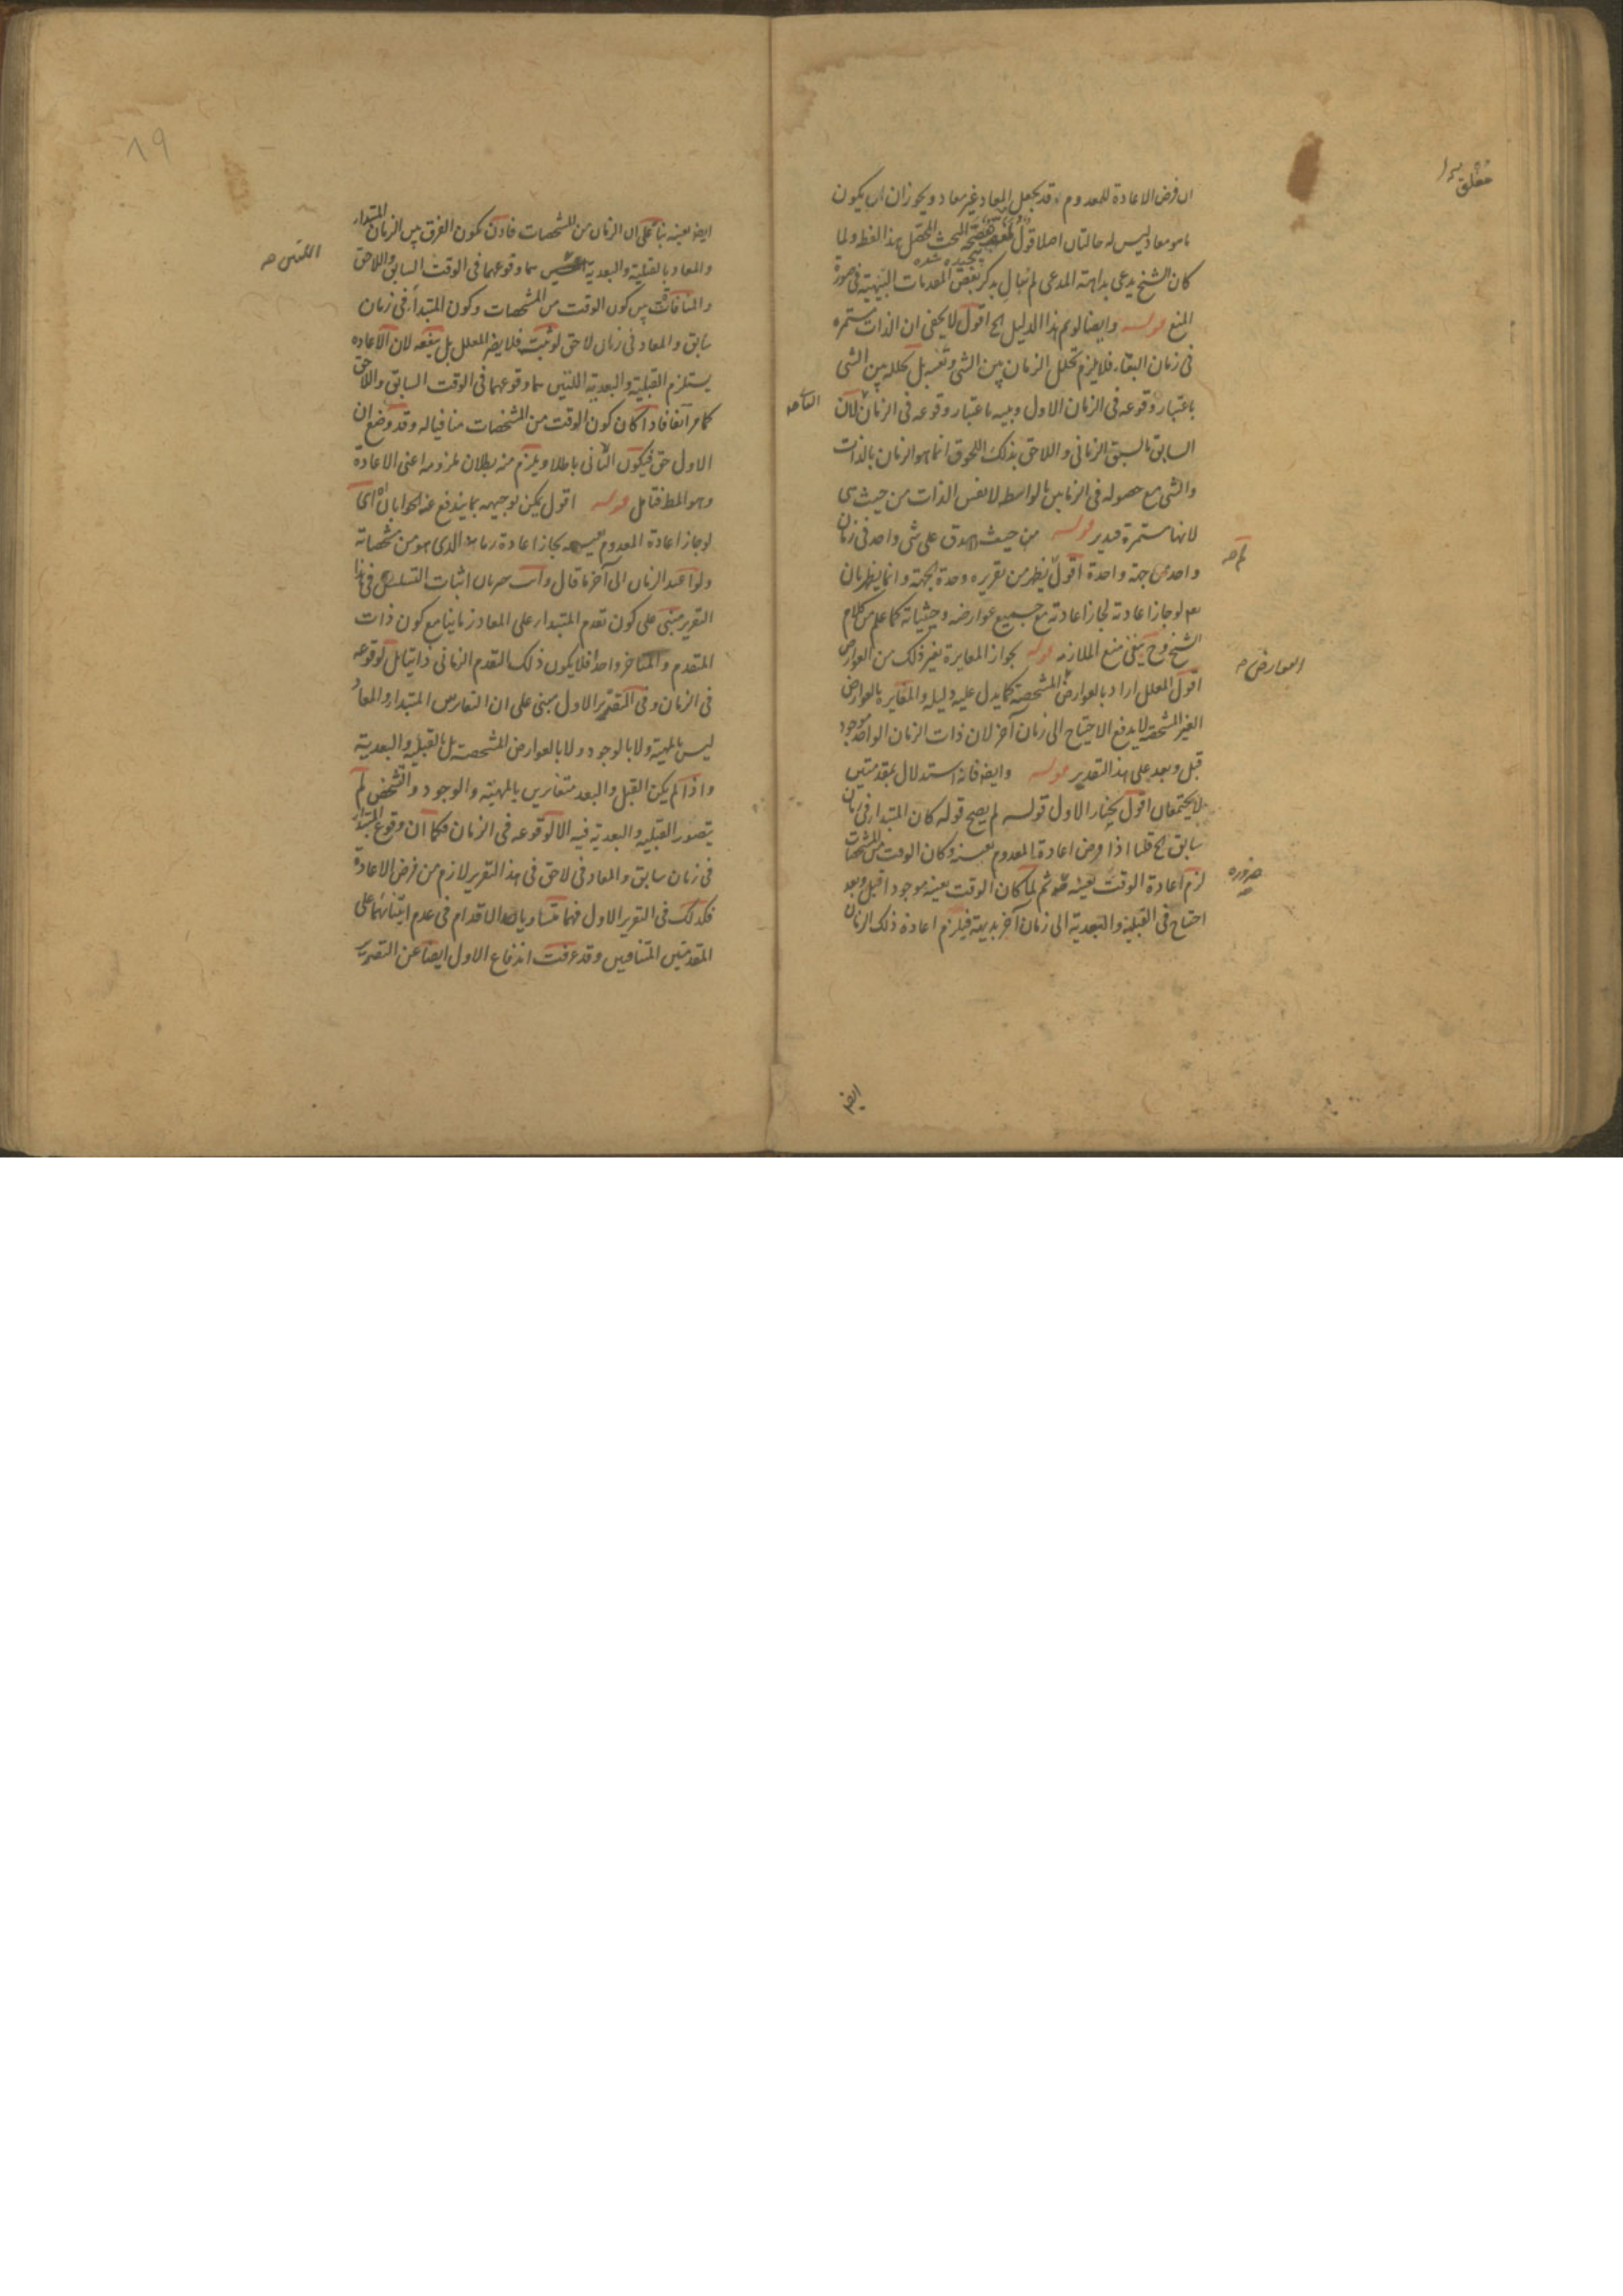 ان فرض الاعادة للمعدوم قد يجعل المعاد غير معاد ويجوز ان ان يكون
ما هو معاد ليس له حالتان اصلا قول هذا اللفظ ولما
كان الشيخ يدعى بداهة المدعى لم يبال بذكر بعض المقدمات البينة فى صورة
المنع قوله وايضا لو تم هذا الدليل الخ اقول لا يخفى ان الذات مستمرة
فى زمان البقاء فلا يلزم تخلل الزمان بين الشى ونفسه بل تخلله بين الشى
باعتبار وقوعه فى الزمان الاول وبينه باعتبار وقوعه فى الزمان لان
السابق بالسبق الزمانى واللاحق بذلك اللحوق انما هو الزمان بالذات
والشى مع حصوله فى الزمانين بالواسطه لا نفس الذات من حيث هى
لانها مستمرة فتدبر قوله من حيث صدق على شى واحد فى زمان
واحد من جهة واحدة اقول يظهر من تقريره وحدة الجهة وانما يظهر بان
لو جاز اعادته لجاز اعادته مع جميع عوارضه وحيثياته كما علم من كلام
الشيخ وح ينبغى منع الملازمه قوله بجواز المغايرة بغير ذلك من العوارض
اقول المعلل اراد بالعوارض المشخصة كما يدل عليه دليله والمغايرة بالعوارض
الغير المشخصه لا يدفع الاحتياج الى زمان آخر لان ذات الزمان الواحد موجود
قبل وبعد على هذا التقدير قوله وايضا فانه استدلال بمقدمتين
لا يجتمعان اقول يختار الاول قوله لم يصح قوله كان المبتدا فى زمان
سابق الخ قلنا اذا فرض اعادة المعدوم بعينه وكان الوقت من المشخصات
لزم اعادة الوقت بعينه ثم لما كان الوقت بعينه موجودا قبل وبعد
احتاج فى القبلية والبعدية الى زمان آخر بديهة فيلزم اعادة ذلك الزمان
العوارض صح
ضرورة
ايضا
١٩
ايضا بعينه بناء على ان الزمان من المشخصات فاذن يكون الفرق بين الزمان المبتدا
والمعاد بالقبلية والبعدية بما وقوعهما فى الوقت السابق واللاحق
اللتين صح
والمنافاة بين كون الوقت من المشخصات وكون المبتدا فى زمان
سابق والمعاد فى زمان لاحق لو ثبت فلا يضر المعلل بل ينفعه لان الاعاده
يستلزم القبلية والبعدية اللتين بما وقوعهما فى الوقت السابق واللاحق
كما مر آنفا فاذا كان كون الوقت من المشخصات منافيا له وقد وضع ان
الاول حق فيكون الثانى باطلا ويلزم منه بطلان ملزومه اعنى الاعادة
وهو المط فتامل قوله اقول يمكن توجيهه بما يندفع عنه الجوابان اى
لو جاز اعادة المعدوم بعينه لجاز اعادة زمانه الذى هو من مشخصاته
ولو اعيد الزمان الى آخر ما قال وانت خبير بان اثبات التسلسل فى هذا
التقرير مبنى على كون تقدم المبتدا على المعاد زمانيا مع كون ذات
المتقدم والمتاخر واحدا فلا يكون ذلك التقدم الزمانى ذاتيا بل لوقوعه
فى الزمان وفى التقرير الاول مبنى على ان التغاير بين المبتدا والمعاد
ليس بالمهية ولا بالوجود ولا بالعوارض المشخصة بل بالقبلية والبعدية
واذا لم يكن القبل والبعد متغايرين بالمهية والوجود والتشخص لم
يتصور القبلية والبعدية فيه الا لوقوعه فى الزمان فكما ان وقوع المبتدا
فى زمان سابق والمعاد فى لاحق فى هذا التقرير لازم من فرض الاعادة
فكذلك فى التقرير الاول فهما متساويا الاقدام فى عدم ابتنائهما على
المقدمتين المتنافيين وقد عرفت اندفاع الاول ايضا عن التصوير